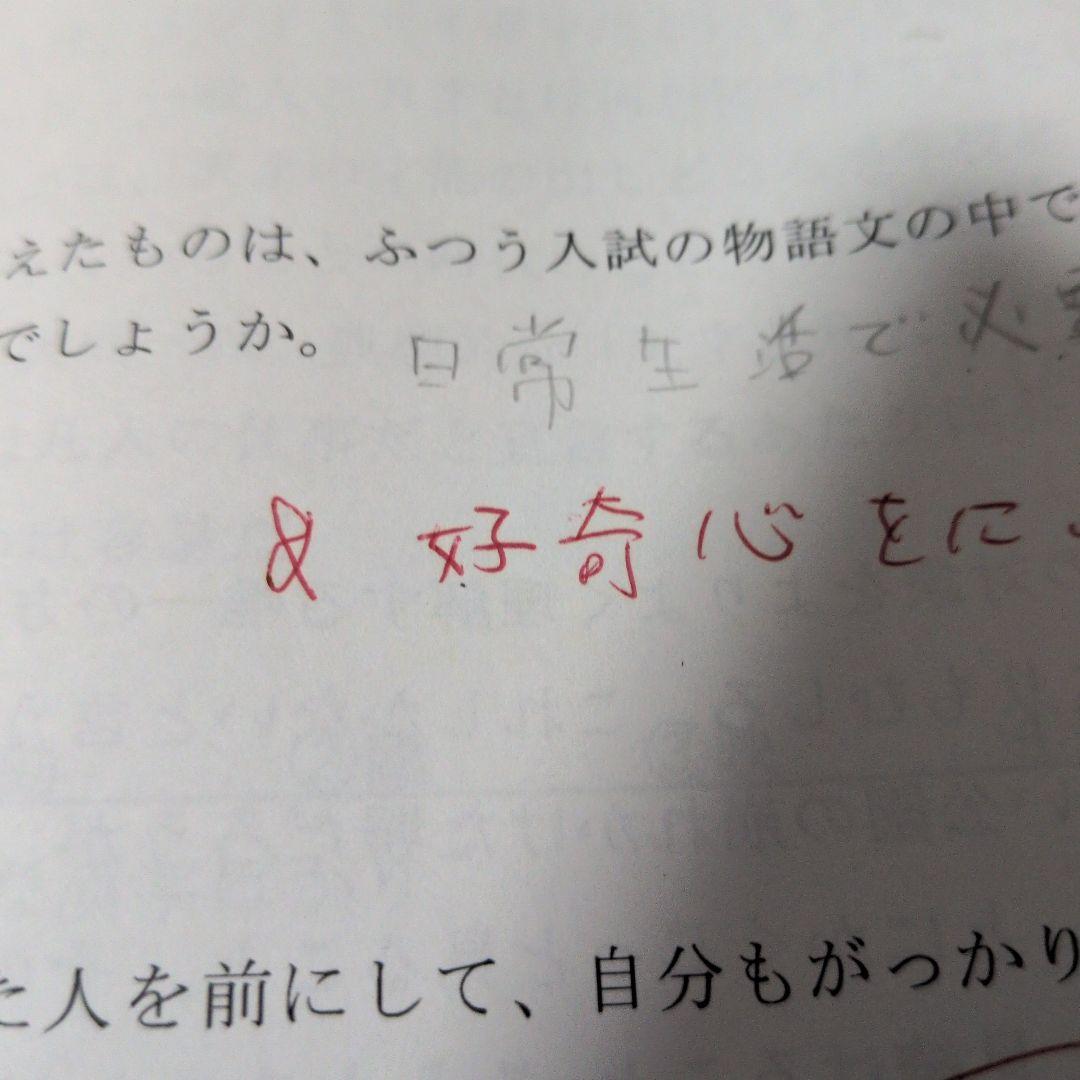 えたものは、ふつう入試の物語文の中で
でしょうか。 日常生活で必要
& 好奇心をに
た人を前にして、自分もがっかり